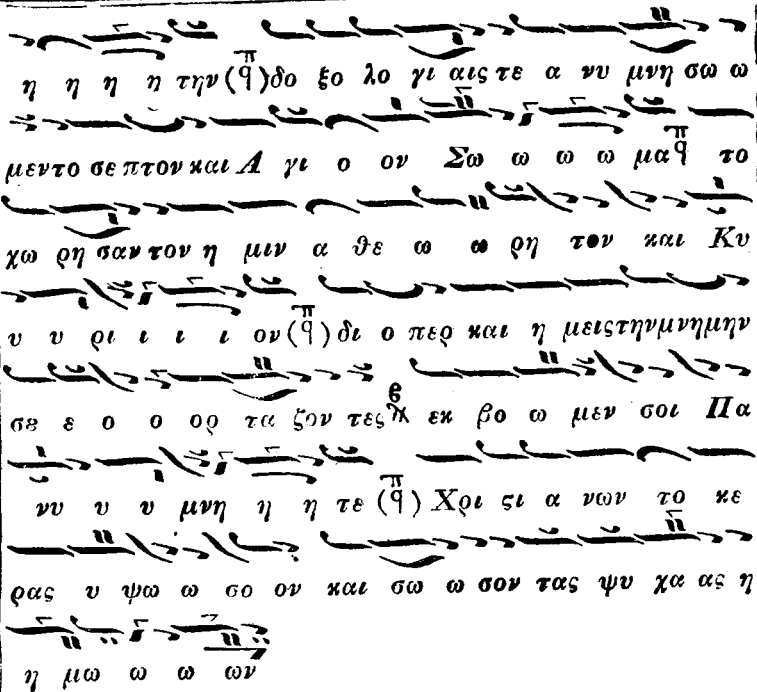 η η η η την (π q) δο ξο λο γι αις τε α νυ μνη σω ω
μεν το σε πτον και Α γι ο ον Σω ω ω ω μα π q το
χω ρη σαν τον η μιν α θε ω ω ρη τον και Κυ
υ υ ρι ι ι ι ον (π q) δι ο περ και η μεις την μνη μην
σȣ ε ο ο ορ τα ζον τες εκ βο ω μεν σοι Πα
νυ υ υ μνη η η τε (π q) Χρι ϛι α νων το κε
ρας υ ψω ω σο ον και σω ω σον τας ψυ χα ας η
η μω ω ω ων